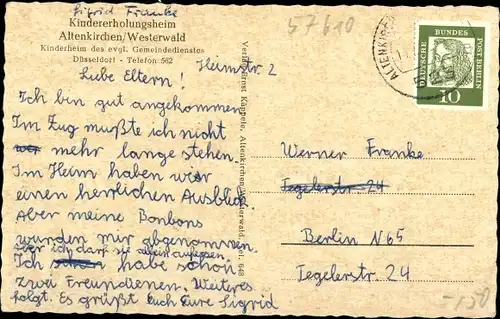 Sigrid Franke
Kindererholungsheim
Altenkirchen/Westerwald
Kinderheim des evgl. Gemeindedienstes
Düsseldorf - Telefon 562
Heimstr. 2
Liebe Eltern!
Ich bin gut angekommen.
Im Zug mußte ich nicht
mehr lange stehen.
Im Heim haben wir
einen herrlichen Ausblick.
Aber meine Bonbons
wurden mir abgenommen.
aber ich darf sie allein aufessen
Ich habe schon
zwei Freundienen. Weiteres
folgt. Es grüßt Euch Eure Sigrid
Verlag Drost Käppele, Altenkirchen/Westerwald, Tel. 648
57610
ALTENKIRC
DEUTSCHE BUNDES POST BERLIN
10
Werner Franke
Tegelerstr 24
Berlin N65
Tegelerstr. 24
-,50